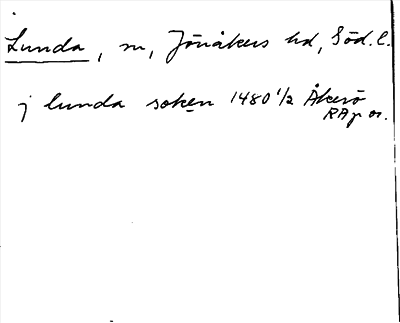 Lunda, sn, Jönåkers hd, Söd. l.
j lunda soken 1480 1/2 Åkerö
RAp or.